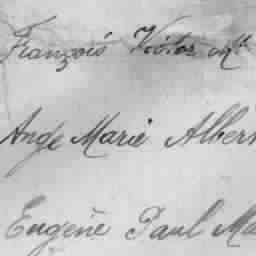 François Victor
Ange Marie Albert
Eugène Paul